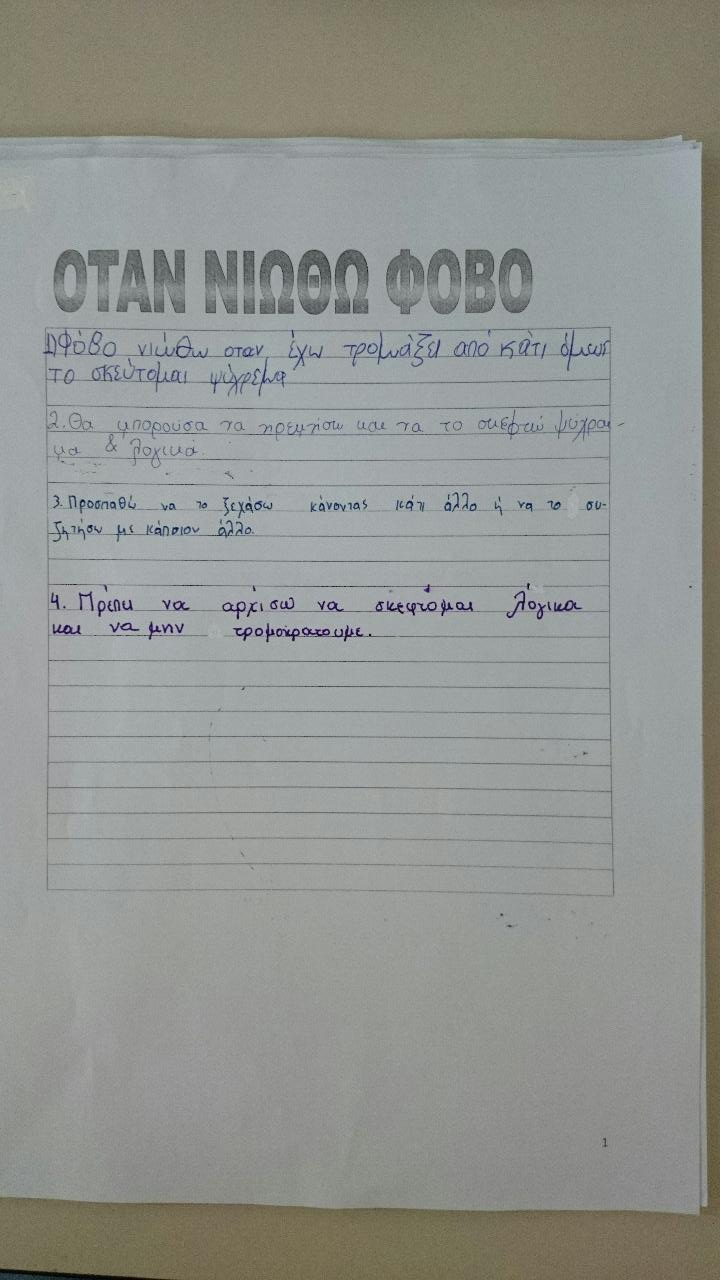 ΟΤΑΝ ΝΙΩΘΩ ΦΟΒΟ
1) Φόβο νιώθω οταν έχω τρομάξει από κάτι όμως
το σκεύτομαι ψύχρεμα
2. Θα μπορούσα να ηρεμήσω και να το σκεφτώ ψύχραι-
μα & λογικά.
3. Προσπαθώ να το ξεχάσω κάνοντας κάτι άλλο ή να το συ-
ζητήσω με κάποιον άλλο.
4. Πρέπει να αρχίσω να σκεφτόμαι λόγικα
και να μην τρομοκρατουμε.
1